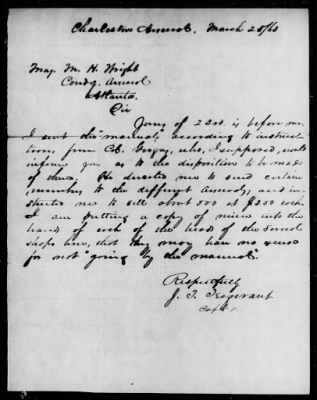 Charleston Arsenal, March 25/63
Maj. M. H. Wright
Comdg. Arsenal
Atlanta.
Sir
Yours of 23rd. is before me.
I sent the "manuals" according to instruct-
ions from Col. Gorgas, who, I supposed, would
inform you as to the disposition to be made
of them. He directed me to send certain
numbers to the different Arsenals, and in-
structed me to sell about 500 at $3.00 each.
I am putting a copy of mine into the
hand of each of the head of the several
shops here, that they may have no excuse
for not "going by the manual."
Respectfully
J. T. Trezevant
Capt